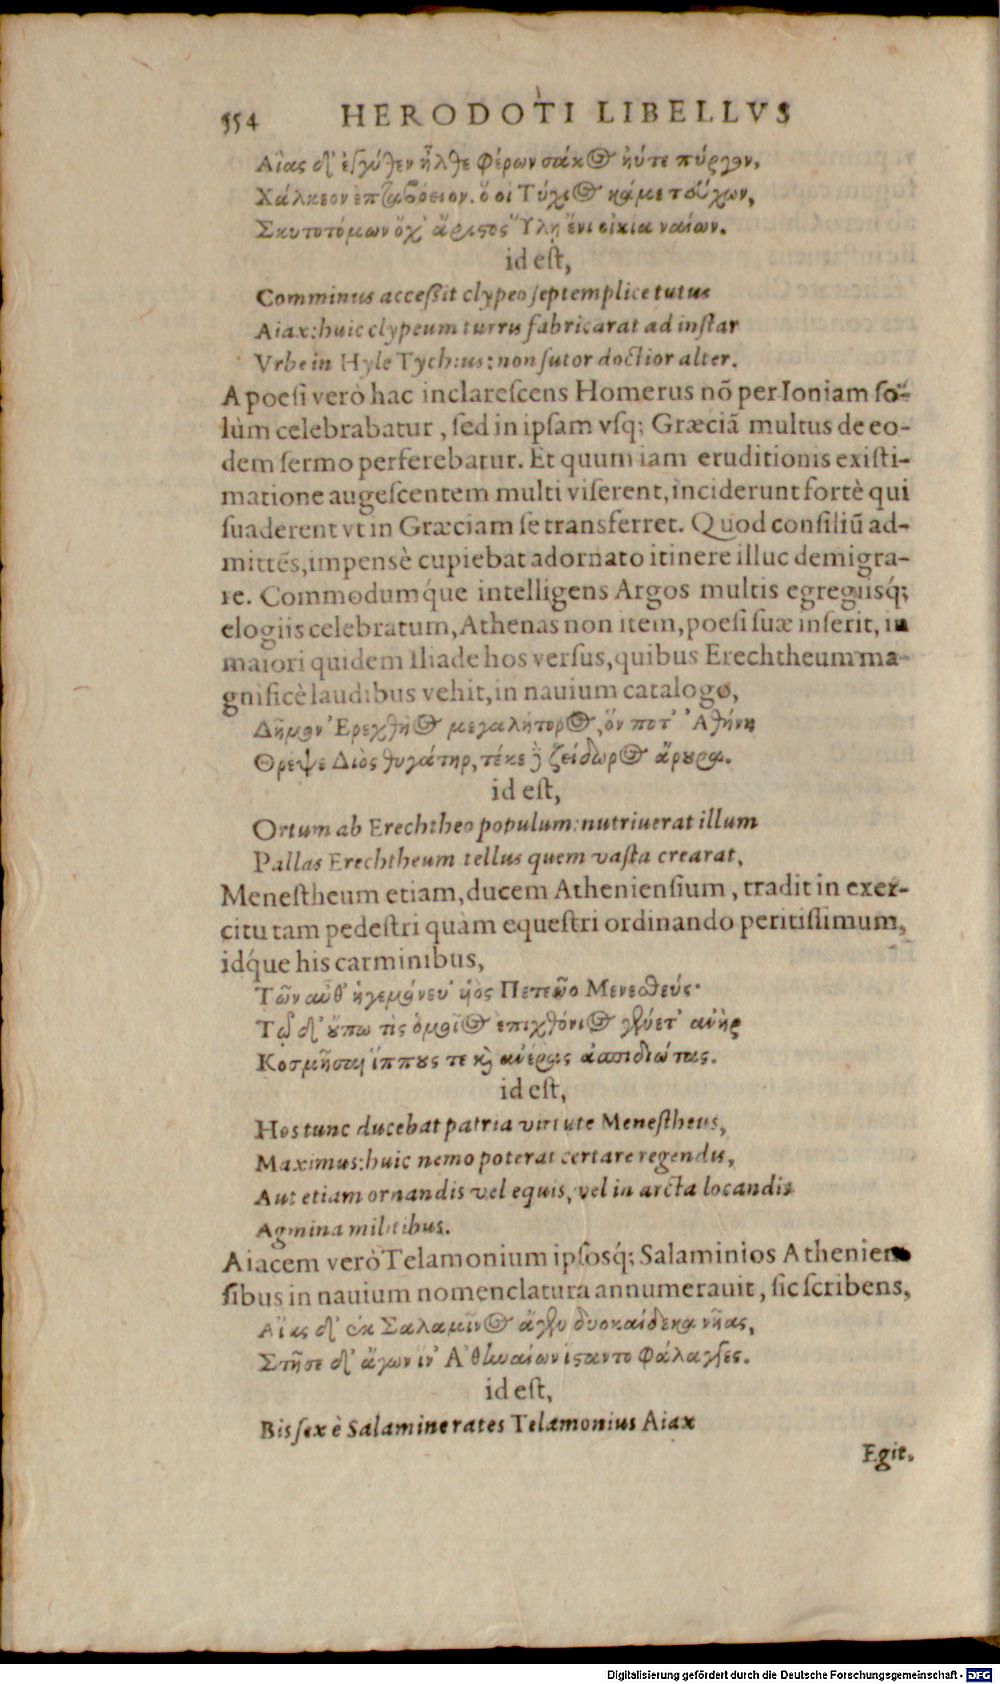 554 HERODOTI LIBELLVS
Αἴας δ' ἐγγύθεν ἦλθε φέρων σάκος ἠΰτε πύργον,
Χάλκεον ἑπταβόειον. ὅ οἱ Τύχιος κάμε τεύχων,
Σκυτοτόμων ὄχ' ἄριστος Ὕλῃ ἔνι οἰκία ναίων.
id est,
Comminus acceſsit clypeo ſeptemplice tutus
Aiax: huic clypeum turris fabricarat ad inſtar
Vrbe in Hyle Tychius: non ſutor doctior alter.
A poeſi verò hac inclareſcens Homerus nõ per Ioniam ſo-
lùm celebrabatur, ſed in ipſam vſq; Græciã multus de eo-
dem ſermo perferebatur. Et quum iam eruditionis exiſti-
matione augeſcentem multi viſerent, inciderunt fortè qui
ſuaderent vt in Græciam ſe transferret. Quod conſiliũ ad-
mittẽs, impensè cupiebat adornato itinere illuc demigra-
re. Commodumq́ue intelligens Argos multis egregiisq́;
elogiis celebratum, Athenas non item, poeſi ſuæ inſerit, in
maiori quidem Iliade hos verſus, quibus Erechtheum ma-
gnificè laudibus vehit, in nauium catalogo,
Δῆμον Ἐρεχθῆος μεγαλήτορος, ὅν ποτ' Ἀθήνη
Θρέψε Διὸς θυγάτηρ, τέκε δὲ ζείδωρος ἄρουρα.
id est,
Ortum ab Erechtheo populum: nutriuerat illum
Pallas Erechtheum tellus quem vaſta crearat,
Meneſtheum etiam, ducem Athenienſium, tradit in exer-
citu tam pedeſtri quàm equeſtri ordinando peritiſſimum,
idq́ue his carminibus,
Τῶν αὖθ' ἡγεμόνευ' ὑιὸς Πετεῶο Μενεσθεύς·
Τῷ δ' οὔπω τὶς ὁμοῖος ἐπιχθόνιος γένετ' ἀνὴρ
Κοσμῆσαι ἵππους τε καὶ ἀνέρας ἀσπιδιώτας.
id est,
Hos tunc ducebat patria virtute Meneſtheus,
Maximus: huic nemo poterat certare regendis,
Aut etiam ornandis vel equis, vel in arcta locandis
Agmina militibus.
Aiacem verò Telamonium ipſosq́; Salaminios Athenien-
ſibus in nauium nomenclatura annumerauit, ſic ſcribens,
Αἴας δ' ἐκ Σαλαμῖνος ἄγεν δυοκαίδεκα νῆας,
Στῆσε δ' ἄγων ἵν' Ἀθηναίων ἵσαντο φάλαγγες.
id est,
Bis ſex è Salamine rates Telamonius Aiax
Egit.
Digitalisierung gefördert durch die Deutsche Forschungsgemeinschaft - DFG